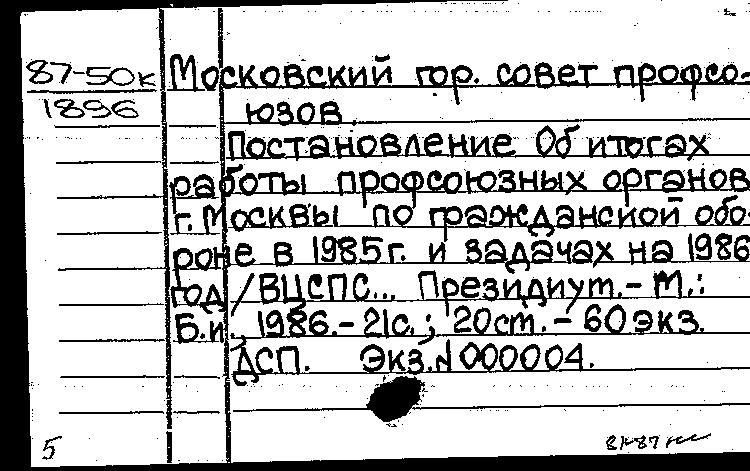 87-50к Московский гор. совет профсо-
1896 юзов.
Постановление Об итогах
работы профсоюзных органов
г. Москвы по гражданской обо-
роне в 1985 г. и задачах на 1986
год /ВЦСПС... Президиум.- М.:
Б.и., 1986.- 21с.; 20ст.- 60 экз.
ДСП. Экз.№000004.
5